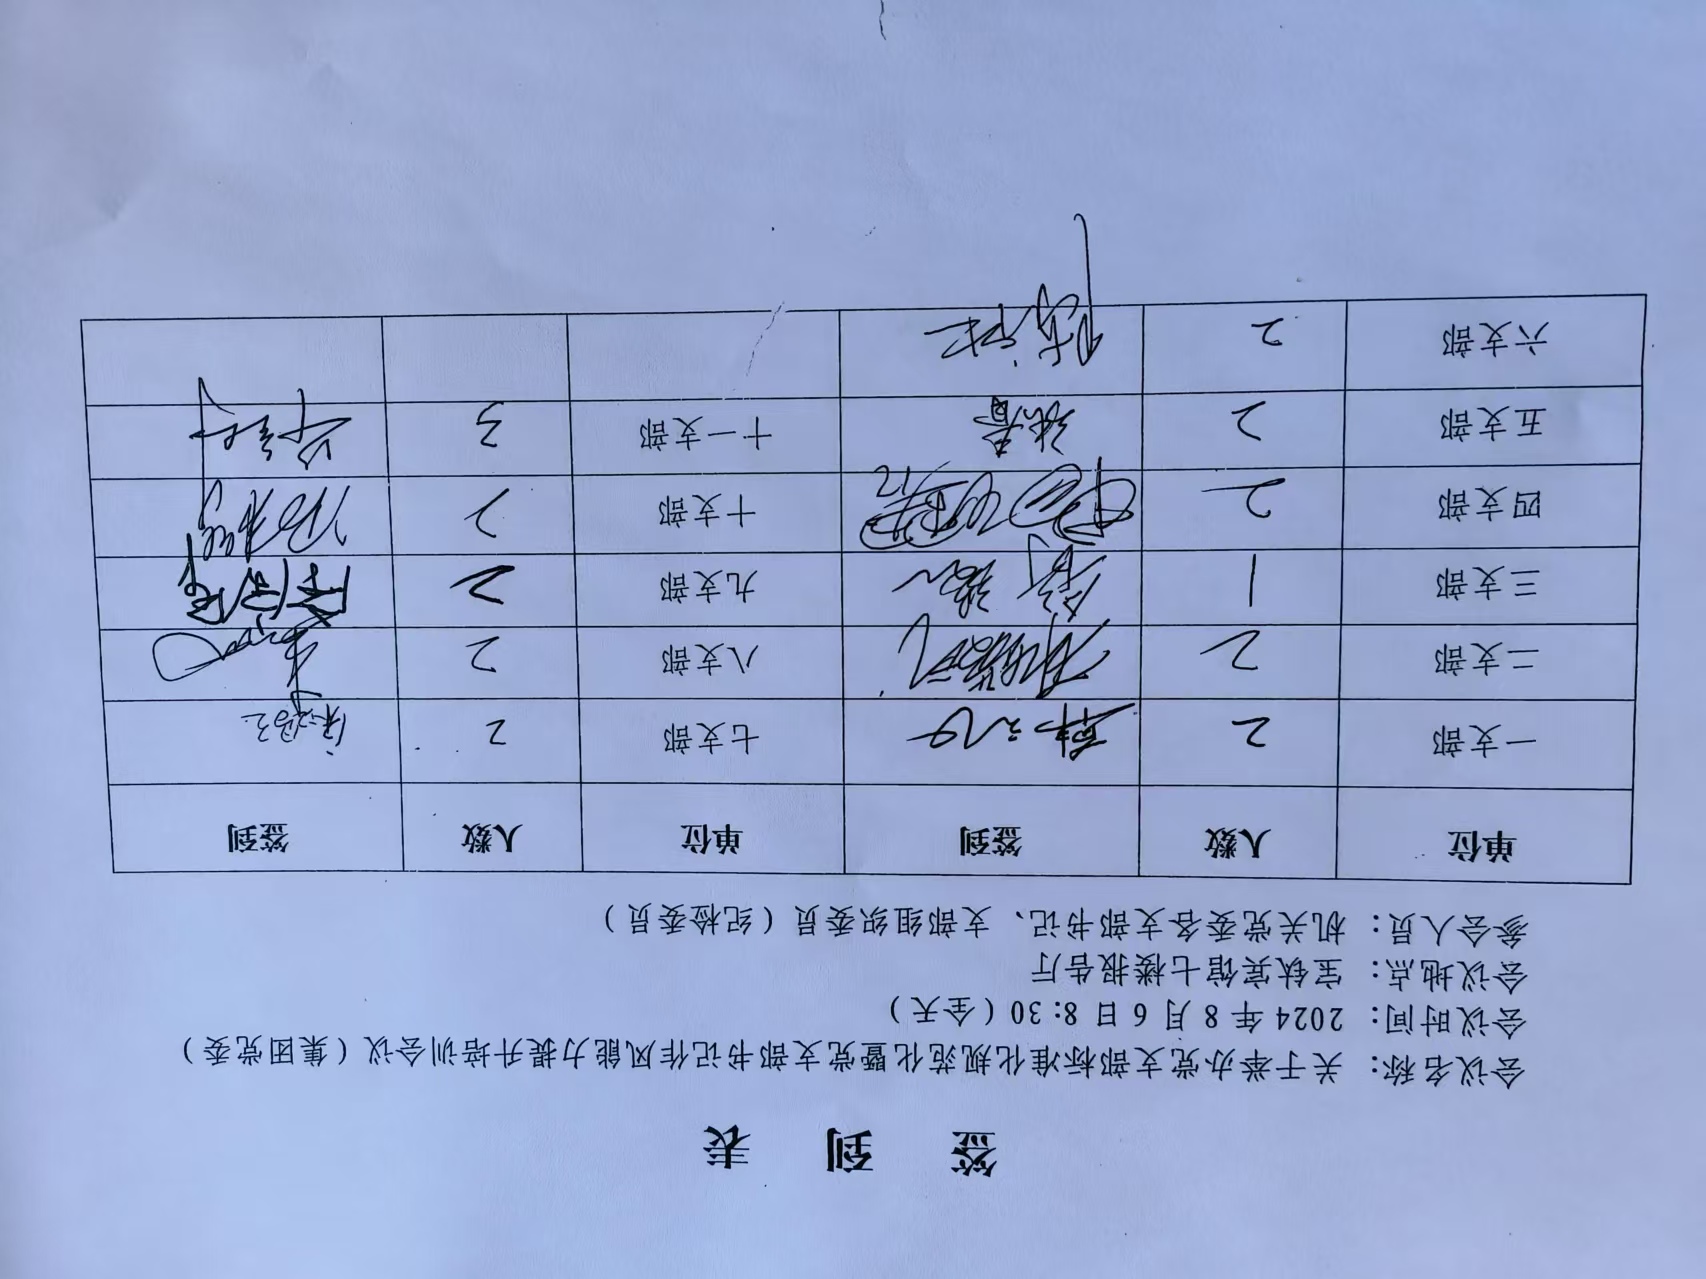 签 到 表
会议名称：关于举办党支部标准化规范化暨党支部书记作风能力提升培训会议（集团党委）
会议时间：2024年8月6日8:30（全天）
会议地点：宝钛宾馆七楼报告厅
参会人员：机关党委各支部书记、支部组织委员（纪检委员）
单位 人数 签到 单位 人数 签到
一支部 2 七支部 2
二支部 2 八支部 2
三支部 1 九支部 2
四支部 2 十支部 2
五支部 2 十一支部 3
六支部 2